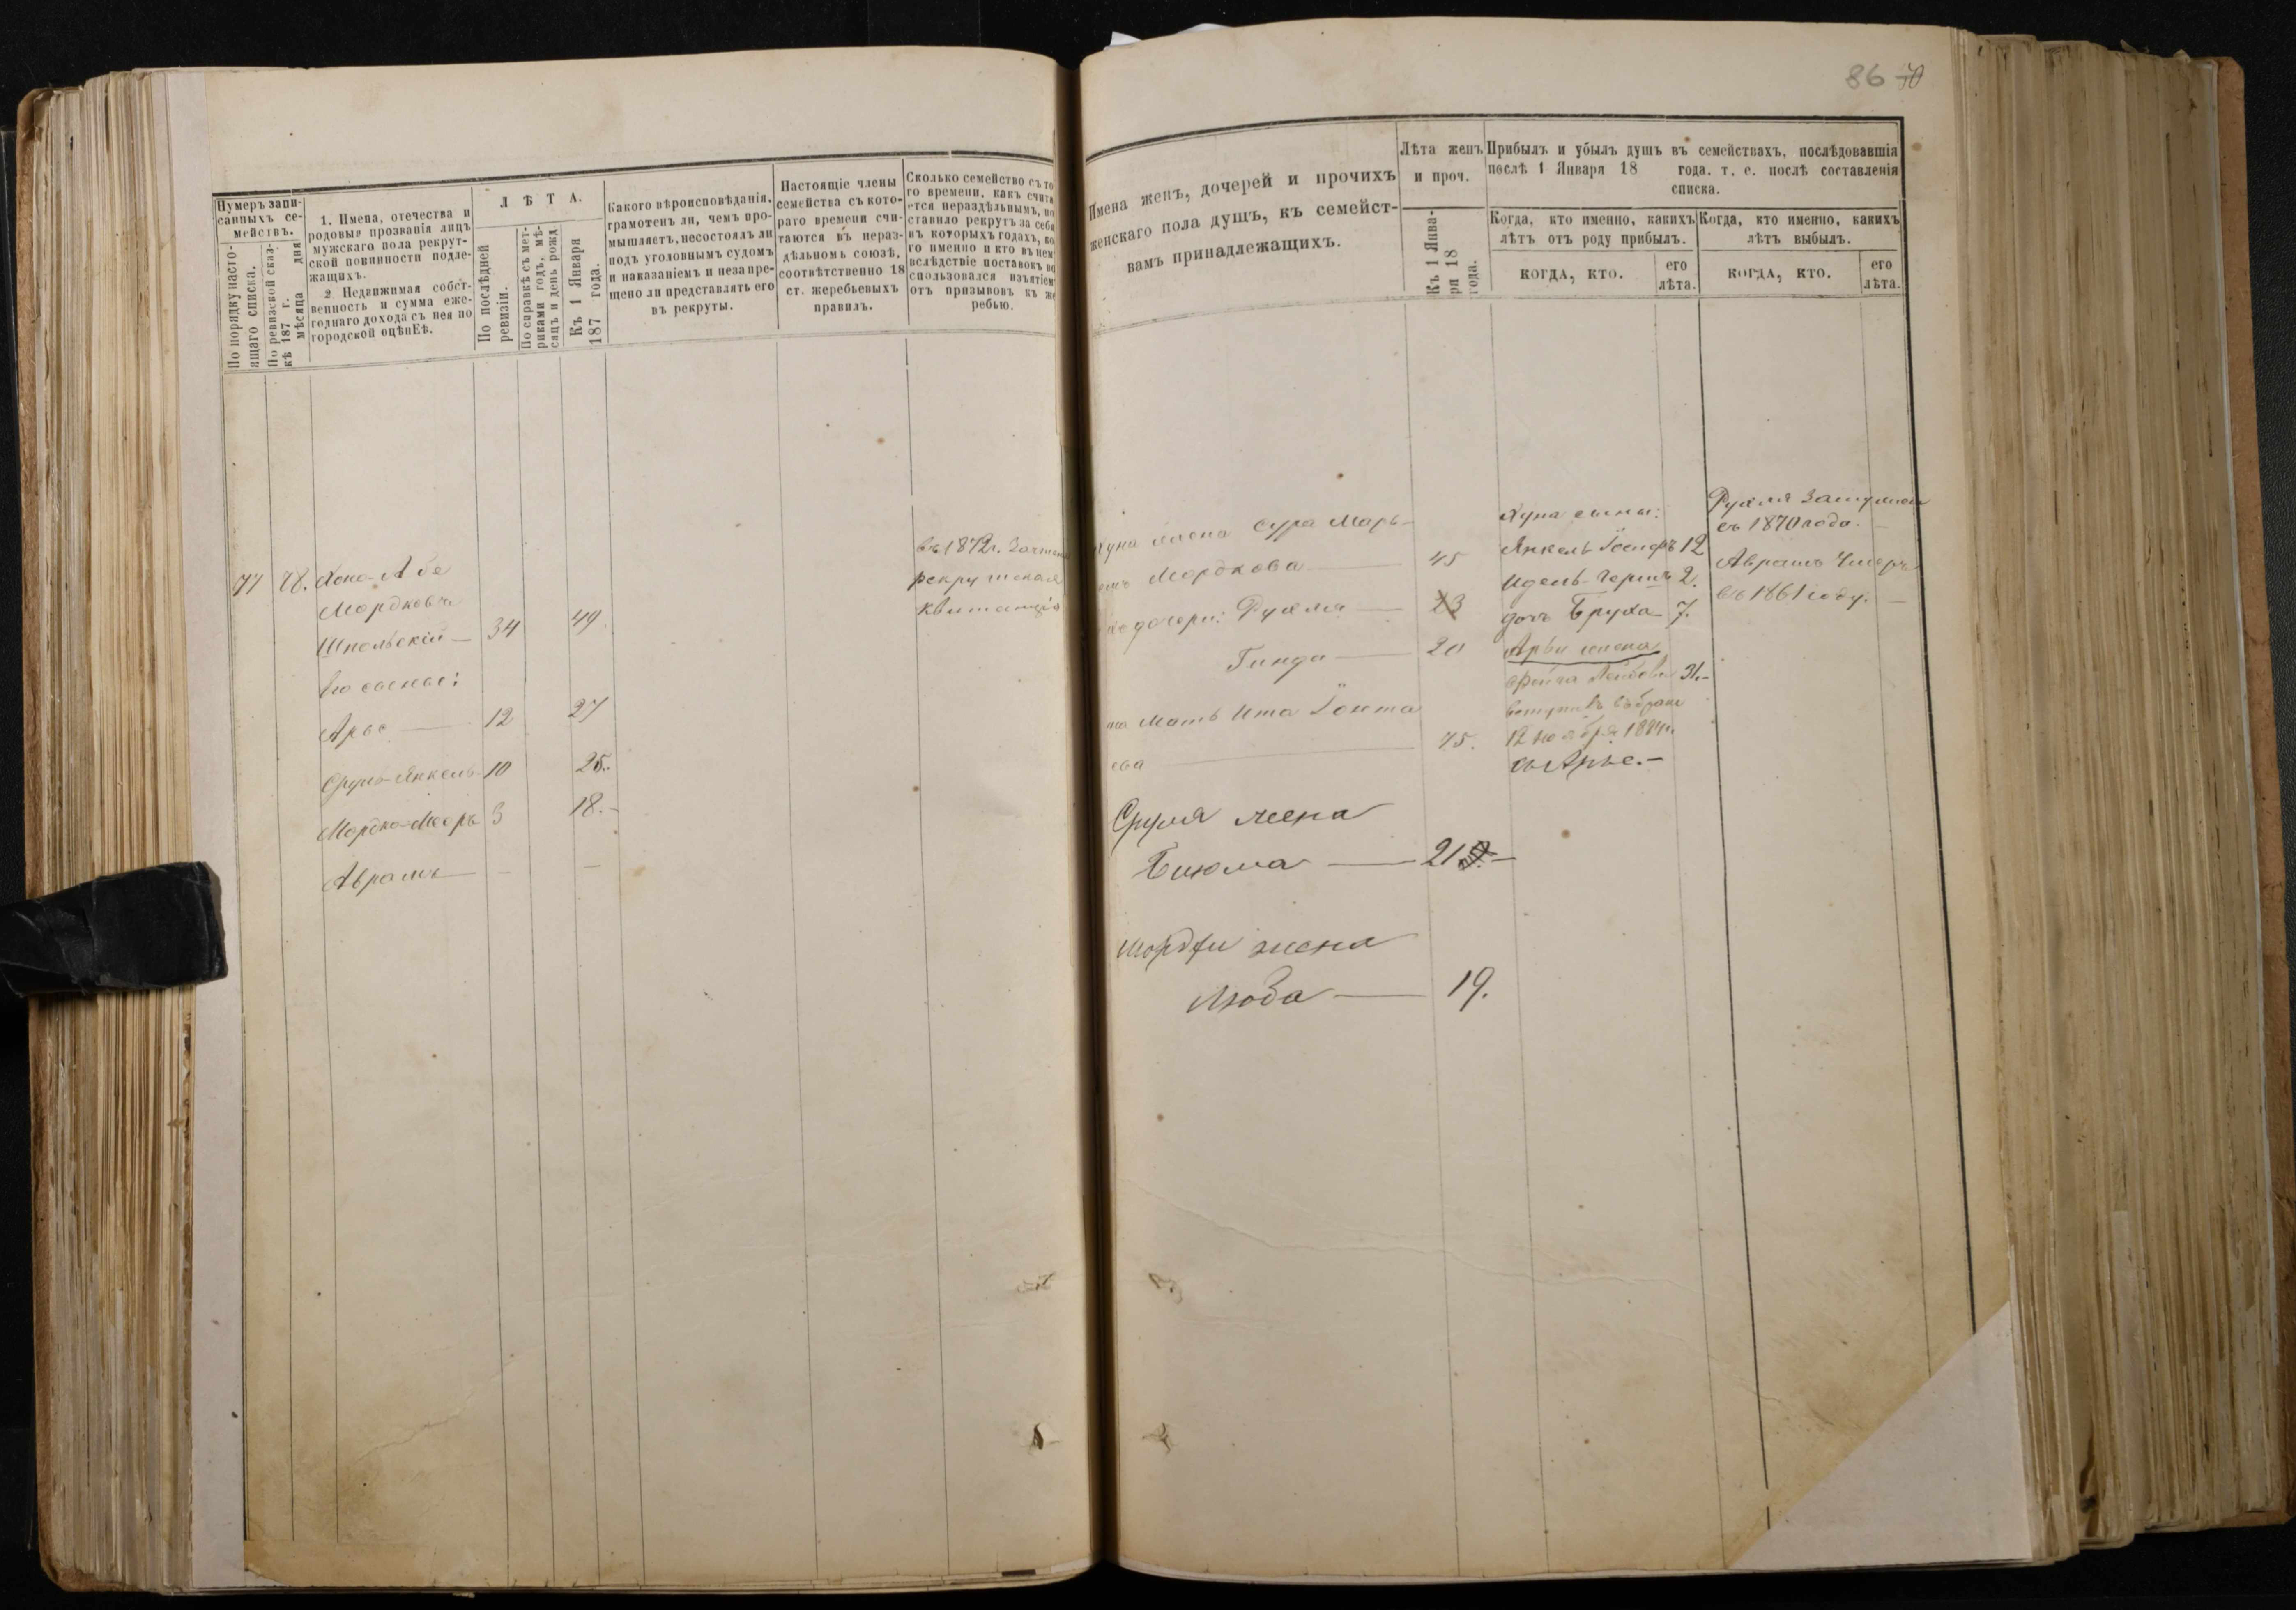 86 70
Нумеръ запи-
санныхъ се-
мействъ.
По порядку насто-
ящаго списка.
По ревизской сказ-
кѣ 187 г.
мѣсяца дня
1. Имена, отечества и
родовыя прозванія лицъ
мужскаго пола рекрут-
ской повинности подле-
жащихъ.
2. Недвижимая собст-
венность и сумма еже-
годнаго дохода съ нея по
городской оцѣнкѣ.
ЛѢТА.
По послѣдней
ревизіи.
По справкѣ съ мет-
риками годъ, мѣ-
сяцъ и день рожд.
Къ 1 Января
187 года.
Какого вѣроисповѣданія,
грамотенъ ли, чемъ про-
мышляетъ, несостоялъ ли
подъ уголовнымъ судомъ
и наказаніемъ и незапре-
щено ли представлять его
въ рекруты.
Настоящіе члены
семейства съ кото-
раго времени счи-
таются въ нераз-
дѣльномъ союзѣ,
соотвѣтственно 18
ст. жеребьевыхъ
правилъ.
Сколько семейство съ то
го времени, какъ счита
ется нераздѣльнымъ, по
ставило рекрутъ за себя
въ которыхъ годахъ, ко
го именно и кто въ нем
вслѣдствіе поставокъ во
спользовался изъятіем
отъ призывовъ къ же
ребью.
77 78. Хуна-Абе
Мордковъ
Шпольскій — 34 49
Его сыны:
Арье — 12 27
Сруль-Янкель 10 25.
Мордко-Меер 3 18.-
Аврамъ — - —
въ 1872 г. Зачтена
рекрутская
квитанція
Имена женъ, дочерей и прочихъ
женскаго пола душъ, къ семейст-
вамъ принадлежащихъ.
Лѣта женъ
и проч.
Къ 1 Янва-
ря 18
года.
Прибылъ и убылъ душъ въ семействахъ, послѣдовавшія
послѣ 1 Января 18 года. т. е. послѣ составленія
списка.
Когда, кто именно, какихъ
лѣтъ отъ роду прибылъ.
КОГДА, КТО.
его
лѣта.
Когда, кто именно, какихъ
лѣтъ выбылъ.
КОГДА, КТО.
его
лѣта.
Хуна жена Сура Марь-
Мордкова — 45
дочери: Рухля — 23
Гинда — 20
Мать Ита Іонта
ева — 75.
Сруля жена
Бикма — 21
Мордки жена
Люба — 19.
Хуна сыны:
Янкель Іосифъ 12
Идель-Герш 2.
дочь Бруха 7.
Арьи жена
Фейга Лейбова 31.-
вступив въ бракъ
12 ноября
съ Арье.-
Рухля Замужем
съ 1870 года. —
Аврамъ Умеръ
въ 1861 году. —